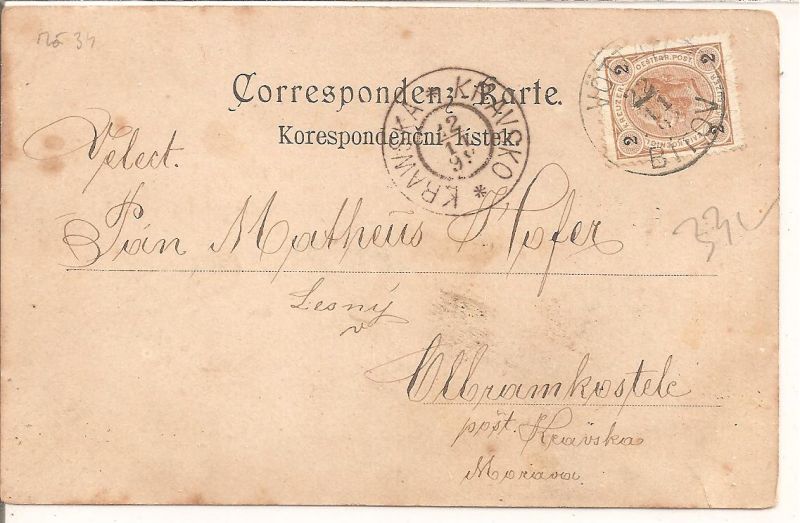 Correspondenz-Karte.
Korespondenční lístek.
KRAWSKA * KRAVSKO *
2
98
2 KREUZER 2
OESTERR. POST
2 2
VÖT
BÍTOV
Velect.
Pán Matheus Hofer
Lesný
v
Olbramkostele
pošt. Kravska
Morava